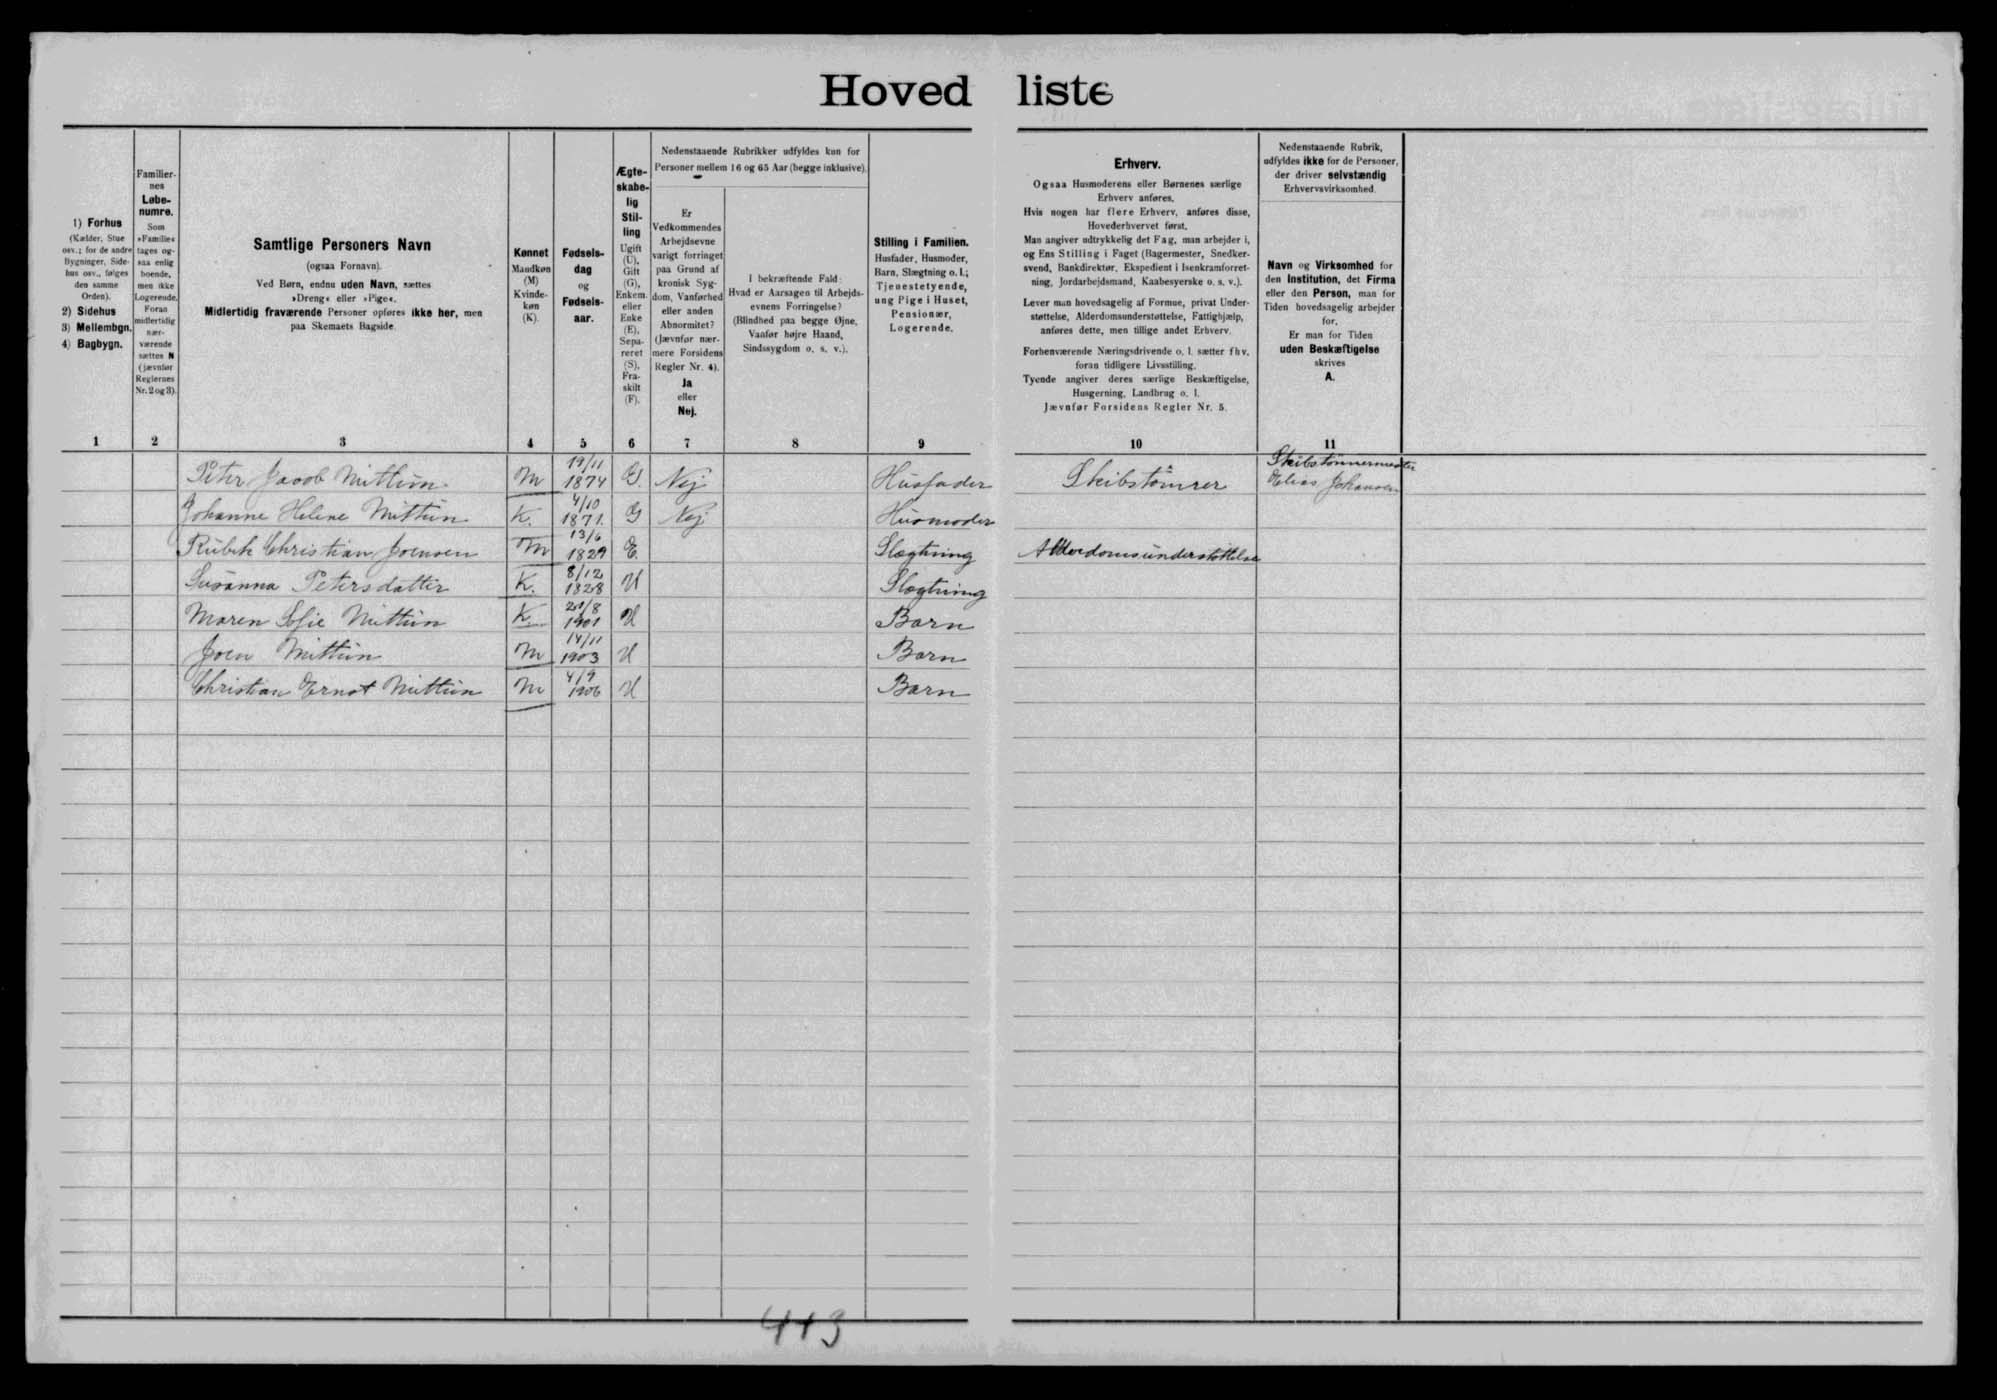 Hovedliste
1) Forhus
(Kælder, Stue
osv.; for de andre
Bygninger, Side-
hus osv., følges
den samme
Orden).
2) Sidehus
3) Mellembygn.
4) Bagbygn.
1
Familier-
nes
Løbe-
numre.
Som
»Familie«
tages og-
saa enlig
boende,
men ikke
Logerende.
Foran
midlertidig
nær-
værende
sættes N
(jævnfør
Reglernes
Nr. 2 og 3).
2
Samtlige Personers Navn
(ogsaa Fornavn).
Ved Børn, endnu uden Navn, sættes
»Dreng« eller »Pige«.
Midlertidig fraværende Personer opføres ikke her, men
paa Skemaets Bagside.
3
Kønnet
Mandkøn
(M)
Kvinde-
køn
(K).
4
Fødsels-
dag
og
Fødsels-
aar.
5
Ægte-
skabe-
lig
Stil-
ling
Ugift
(U),
Gift
(G),
Enkem.
eller
Enke
(E),
Sepa-
reret
(S),
Fra-
skilt
(F).
6
Nedenstaaende Rubrikker udfyldes kun for
Personer mellem 16 og 65 Aar (begge inklusive).
Er
Vedkommendes
Arbejdsevne
varigt forringet
paa Grund af
kronisk Syg-
dom, Vanførhed
eller anden
Abnormitet?
(Jævnfør nær-
mere Forsidens
Regler Nr. 4).
Ja
eller
Nej.
7
I bekræftende Fald:
Hvad er Aarsagen til Arbejds-
evnens Forringelse?
(Blindhed paa begge Øjne,
Vanfør højre Haand,
Sindssygdom o. s. v.).
8
Stilling i Familien.
Husfader, Husmoder,
Barn, Slægtning o. l.;
Tjenestetyende,
ung Pige i Huset,
Pensionær,
Logerende.
9
Erhverv.
Ogsaa Husmoderens eller Børnenes særlige
Erhverv anføres.
Hvis nogen har flere Erhverv, anføres disse,
Hovederhvervet først.
Man angiver udtrykkelig det Fag, man arbejder i,
og Ens Stilling i Faget (Bagermester, Snedker-
svend, Bankdirektør, Ekspedient i Isenkramforret-
ning, Jordarbejdsmand, Kaabesyerske o. s. v.).
Lever man hovedsagelig af Formue, privat Under-
støttelse, Alderdomsunderstøttelse, Fattighjælp,
anføres dette, men tillige andet Erhverv.
Forhenværende Næringsdrivende o. l. sætter fhv.
foran tidligere Livsstilling.
Tyende angiver deres særlige Beskæftigelse,
Husgerning, Landbrug o. l.
Jævnfør Forsidens Regler Nr. 5.
10
Nedenstaaende Rubrik,
udfyldes ikke for de Personer,
der driver selvstændig
Erhvervsvirksomhed.
Navn og Virksomhed for
den Institution, det Firma
eller den Person, man for
Tiden hovedsagelig arbejder
for.
Er man for Tiden
uden Beskæftigelse
skrives
A.
11
Peter Jacob Mittún M 19/11 1874 G. Nej Husfader Skibstömrer Skibstömmermester Elias Johansen
Johanne Helene Mittún K. 4/10 1871. G Nej Husmoder
Rúbek Christian Joensen M 13/6 1829 E. Slægtning Alderdomsúnderstöttelse
Súsanna Petersdatter K. 8/12 1828 U Slægtning
Maren Sofie Mittún K. 20/8 1901 U Barn
Joen Mittún M 14/11 1903 U Barn
Christian Ernst Mittún M 4/9 1906 U Barn
443